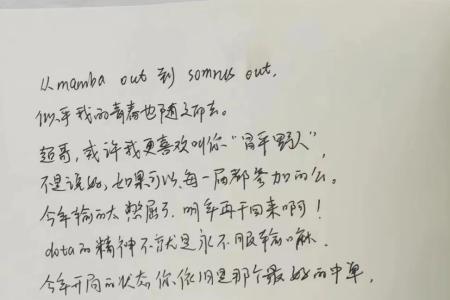 从mamba out 到 somnus out,
似乎我的青春也随之而去。
超哥,或许我更喜欢叫你“昌平野人”,
不是说好,如果可以每一届都参加的么。
今年输的太憋屈了,明年再干回来啊!
dota的精神不就是永不服输嘛,
今年开局的状态,你依旧是那个最好的中单,